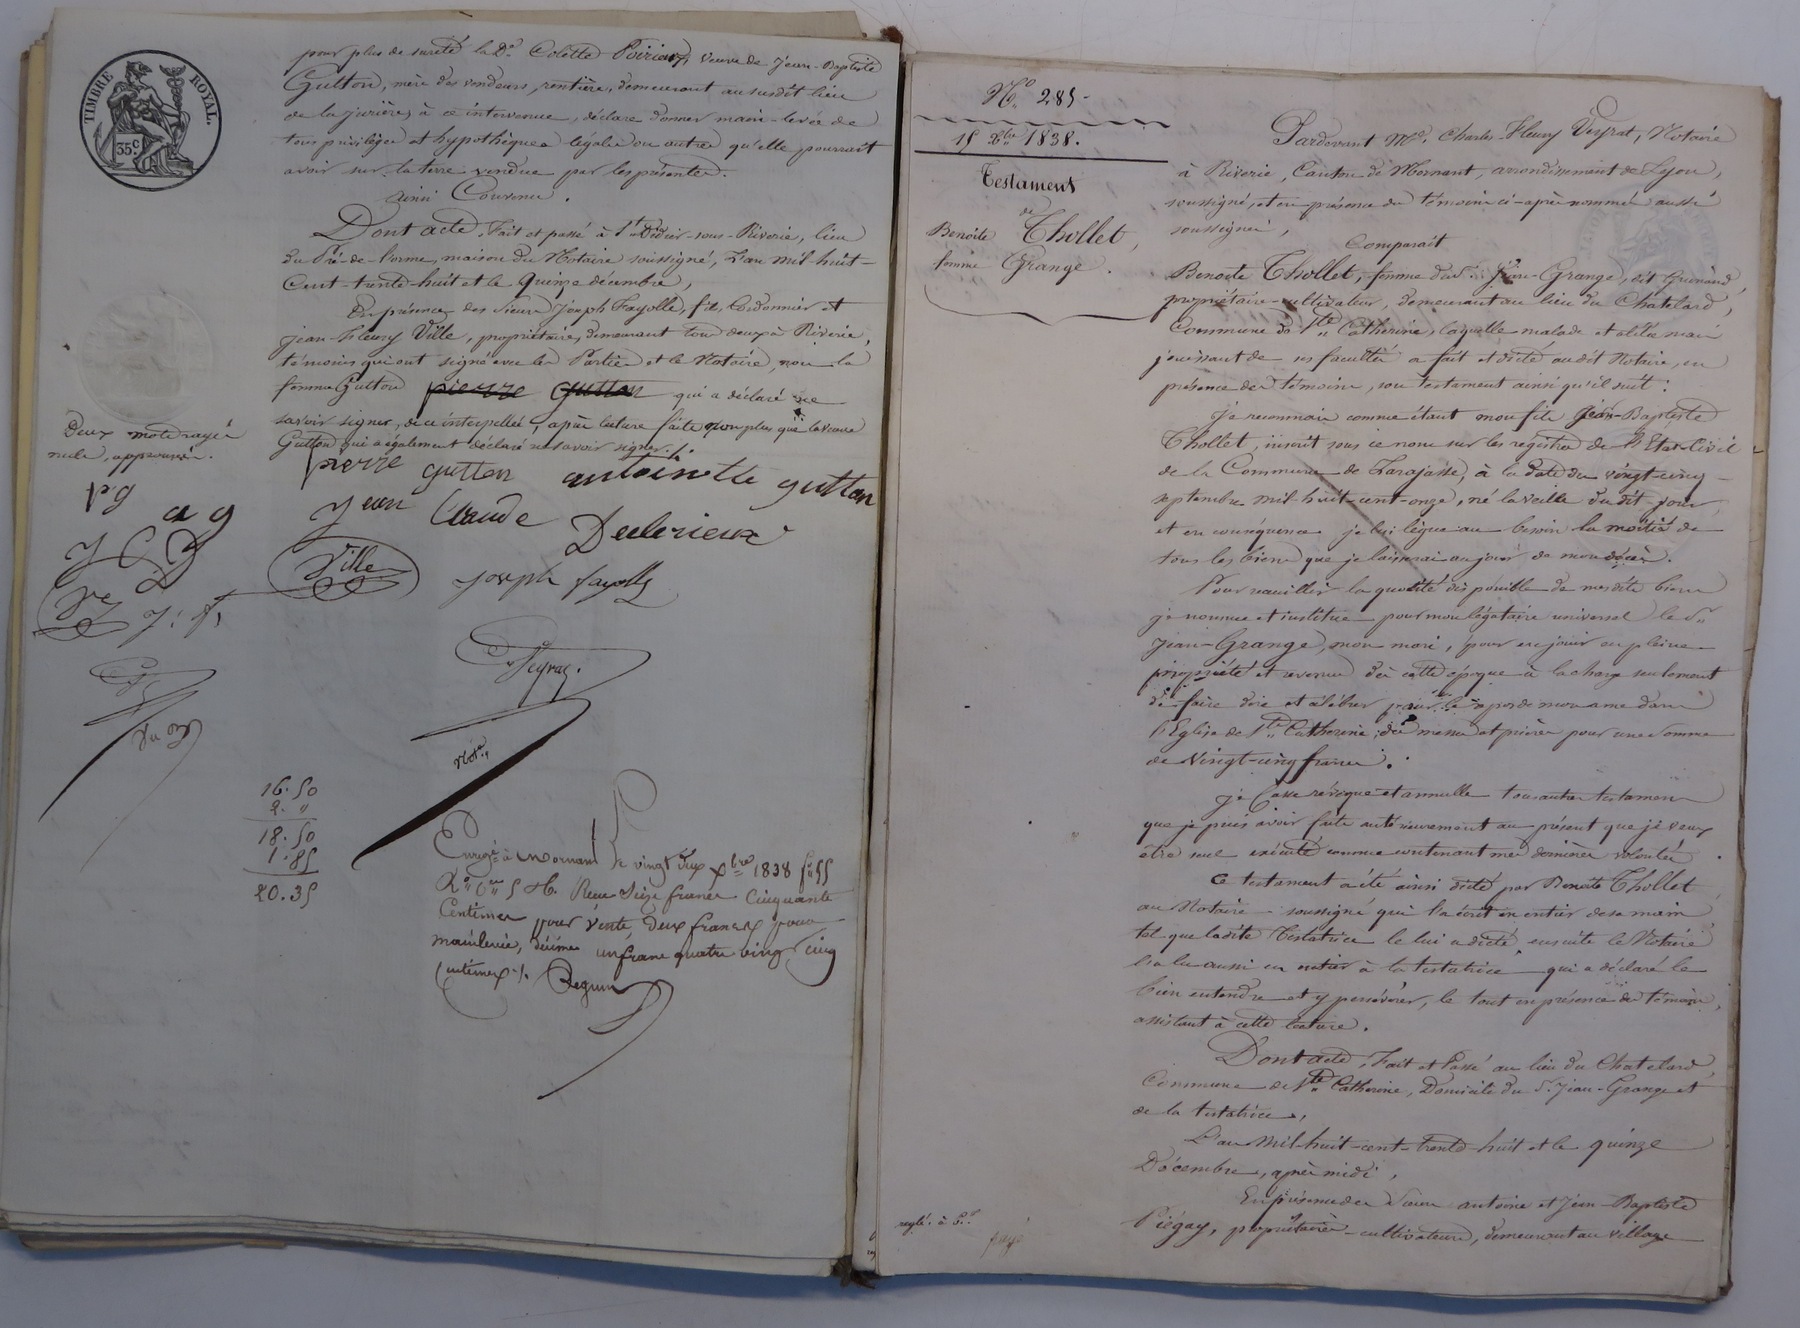 TIMBRE ROYAL.
35c
pour plus de sureté la De. Colette Poirieux, veuve de Jean-Baptiste
Gutton, mère des vendeurs, rentière, demeurant au susdit lieu
de la jurière, à ce intervenue, déclare donner main-levée de
tous privilèges et hypothèques légales ou autres qu'elle pourrait
avoir sur la terre vendue par les présentes.
Ainsi Convenu.
Dont acte, Fait et passé à St. Didier-sous-Riverie, lieu
du Pré-de-l'orme, maison du Notaire soussigné, L'an mil-huit-
Cent-trente-huit et le quinze décembre,
En présence des Sieurs Joseph Fayolle, fils, Cordonnier et
Jean-Fleury Ville, propriétaire, demeurant tous deux à Riverie,
témoins qui ont signé avec les Parties et le Notaire, non la
femme Gutton pierre gutton qui a déclaré ne
savoir signer, de ce interpellée, après lecture faite non plus que la veuve
Gutton qui a également déclaré ne savoir signer.
Deux mots rayés
nuls, approuvés.
pierre gutton antoinette gutton
Jean Claude Declerieux
Ville
joseph fayolle
pg
a g
J C D
J: f
Veyrat.
Notre.
16.50
2. "
18.50
1.85
20.35
Enregé. à Mornant le vingt deux Xbre 1838 fo. 55
Ro. Ces. 5 et 6. Reçu Seize francs Cinquante
Centimes pour vente, Deux francs pour
mainlevée, décime un franc quatre vingt Cinq
Centimes.
No. 285-
15 Xbre 1838.
Testament
de
Benoite Thollet,
femme Grange.
Pardevant Me. Charles-Fleury Veyrat, Notaire
à Riverie, Canton de Mornant, arrondissement de Lyon,
soussigné, et en présence des témoins ci-après nommés aussi
soussignés,
Comparait
Benoite Thollet, femme du Sr. Jean-Grange, dit Guinand,
propriétaire-cultivateur, demeurant au lieu du Chatelard,
Commune de Ste. Catherine, laquelle malade et alitée mais
jouissant de ses facultés a fait et dicté au dit Notaire, en
présence des témoins, son testament ainsi qu'il suit:
Je reconnais comme étant mon fils Jean-Baptiste
Thollet, inscrit sous ce nom sur les registres de l'Etat-Civil
de la Commune de Larajasse, à la date du vingt-cinq
septembre mil-huit-cent-onze, né la veille du dit jour,
et en conséquence je lui lègue au besoin la moitié de
tous les biens que je laisserai au jour de mon décès.
Pour recueillir la quotité disponible de mes dits biens
je nomme et institue pour mon légataire universel le Sr.
Jean-Grange, mon mari, pour en jouir en pleine
propriété et revenu dès cette époque à la charge seulement
de faire dire et célébrer pour le repos de mon ame dans
l'Eglise de Ste. Catherine, des messes et prières pour une somme
de vingt-cinq francs.
Je Casse révoque et annulle tous autres testamens
que je puis avoir faits antérieurement au présent que je veux
être seul exécuté comme contenant mes dernières volontés.
Ce testament a été ainsi dicté par Benoite Thollet
au Notaire soussigné qui l'a écrit en entier de sa main
tel que la dite testatrice le lui a dicté, ensuite le Notaire
l'a lu aussi en entier à la testatrice qui a déclaré le
bien entendre et y persévérer, le tout en présence des témoins,
assistant à cette lecture.
Dont acte, Fait et Passé au lieu du Chatelard,
Commune de Ste. Catherine, Domicile du Sr. Jean-Grange et
de la testatrice,
L'an Mil-huit-cent-trente-huit et le quinze
Décembre, après midi,
En présence des Sieurs antoine et Jean-Baptiste
Piégay, propriétaires-cultivateurs, demeurant au village
payé